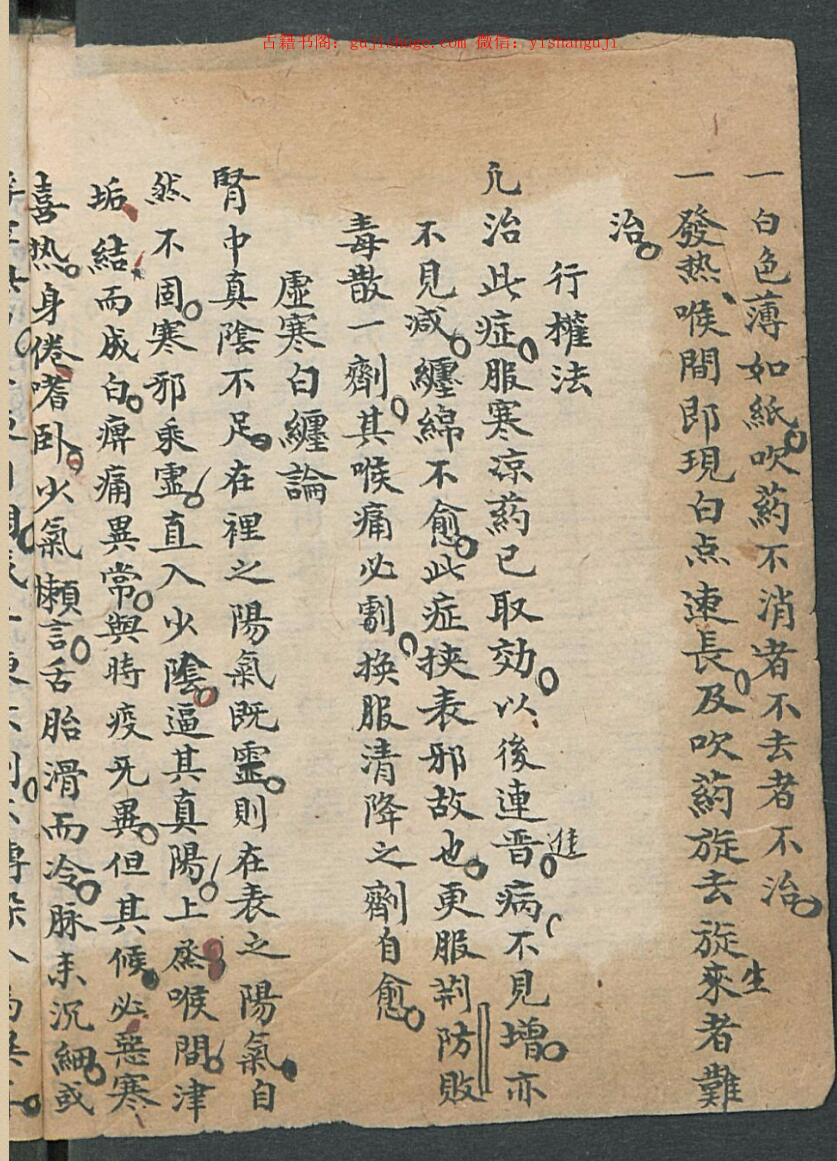 古籍书阁：gujishuge.com 微信：yishanguji
一白色薄如紙吹药不消者不去者不治
一發热喉間即現白点速長及吹药旋去旋來生者難
治
行權法
凡治此症服寒涼药已取効以後連晋進病不見增亦
不見減纏綿不愈此症挟表邪故也更服荆防敗
毒散一劑其喉痛必劇换服清降之劑自愈
虛寒白纏論
腎中真陰不足在裡之陽氣既虛則在表之陽氣自
然不固寒邪乘虛直入少陰逼其真陽上蒸喉間津
垢結而成白痹痛異常與時疫无異但其候必惡寒
喜热身倦嗜卧少氣懒言舌胎滑而冷脉来沉細或